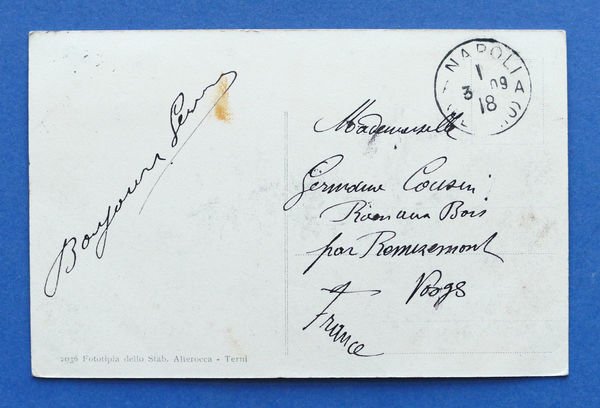 NAPOLI A
1
3 09
18
Bonjours
Mademoiselle
Germaine Cousin
aux Bois
par Remiremont
Vosges
France
2036 Fototipia dello Stab. Alterocca - Terni